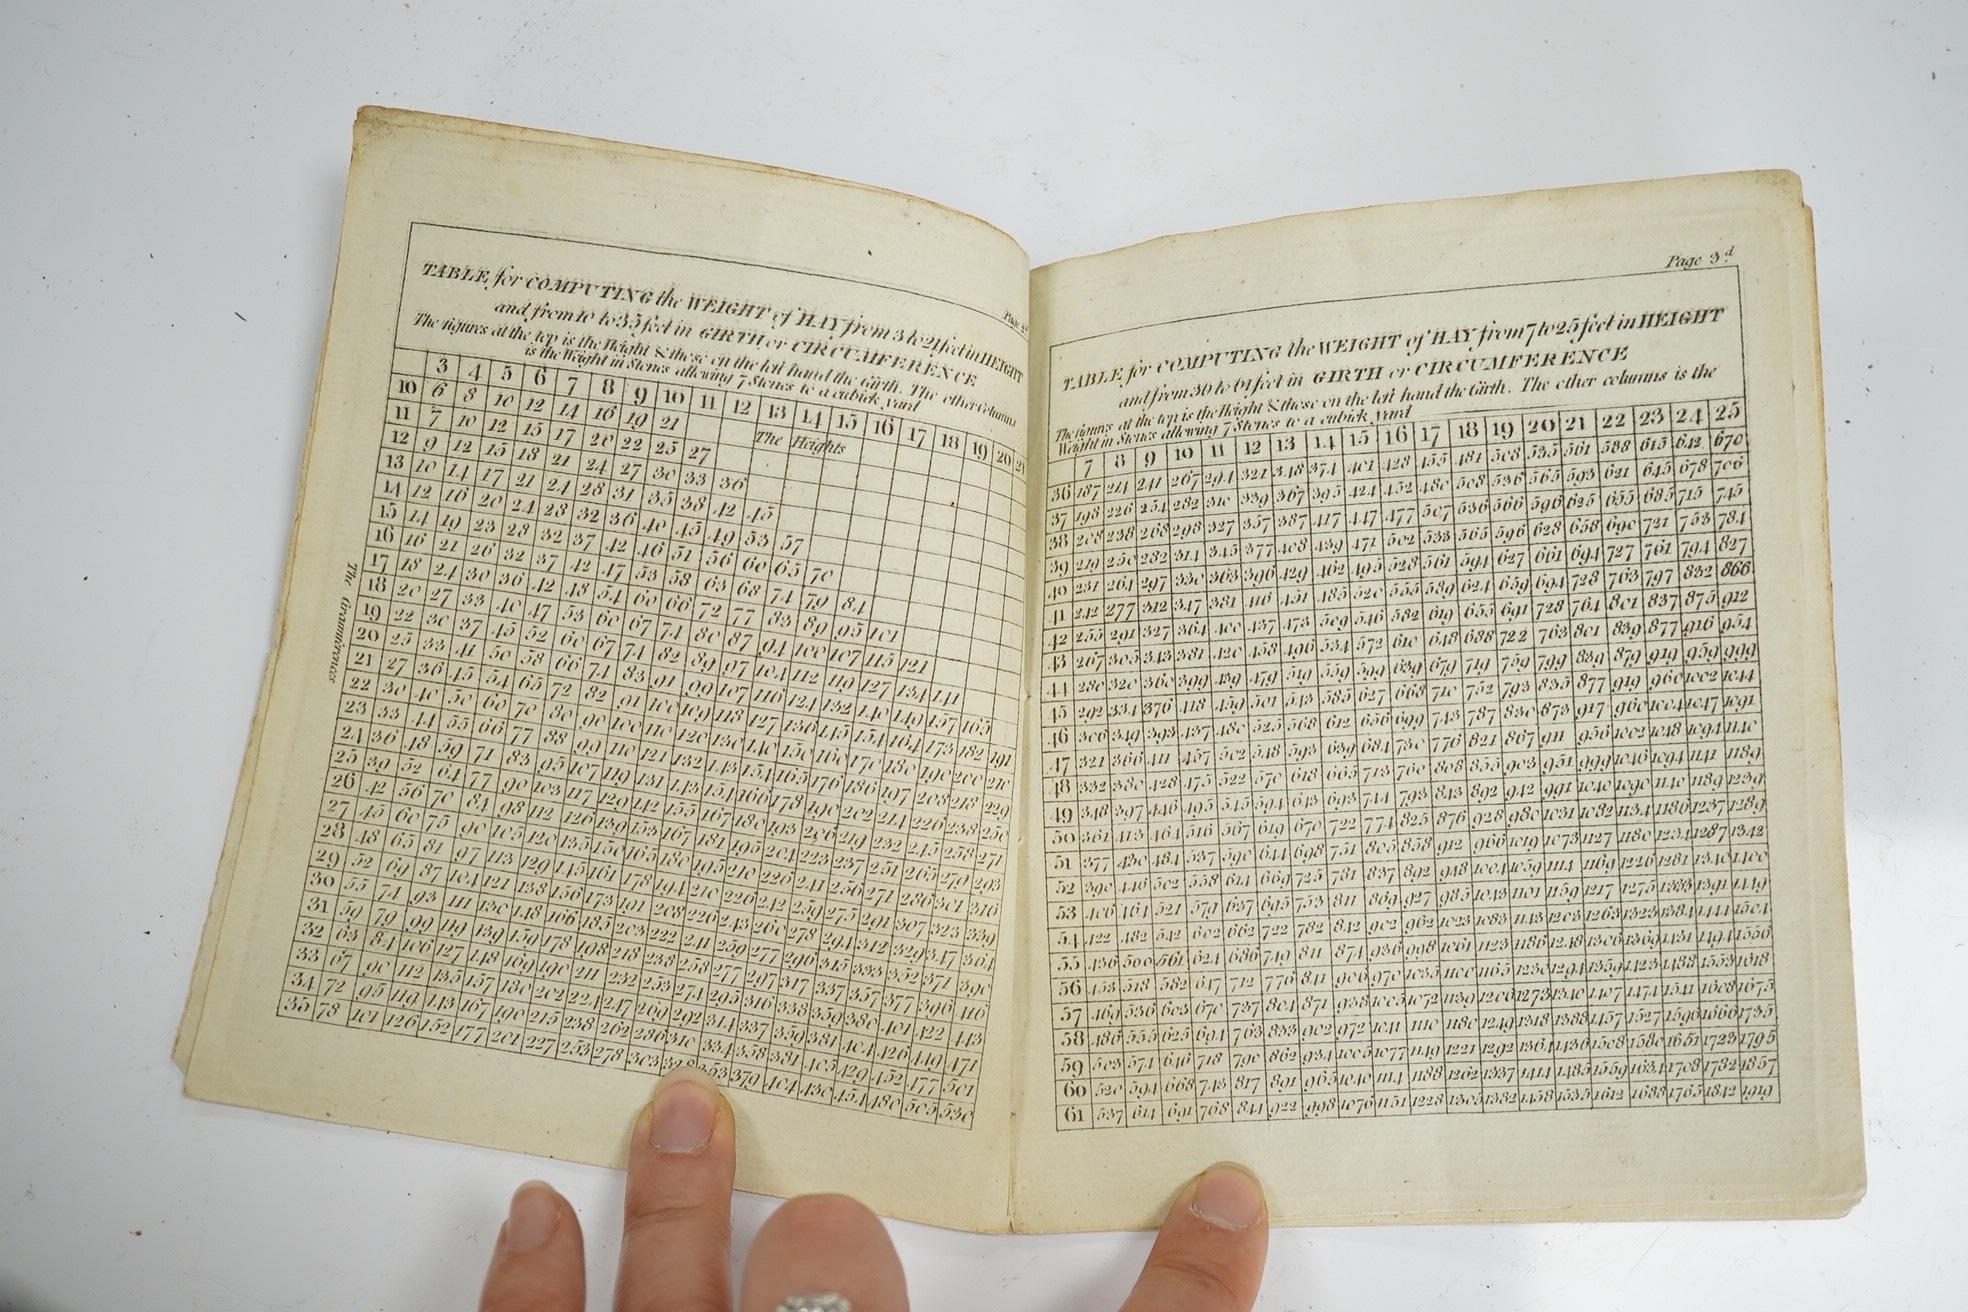 Page 3d
TABLE for COMPUTING the WEIGHT of HAY from 3 to 21 feet in HEIGHT
and from 10 to 35 feet in GIRTH or CIRCUMFERENCE
The figures at the top is the Height & these on the left hand the Girth. The other Columns
is the Weight in Stones allowing 7 Stones to a cubick yard
3 4 5 6 7 8 9 10 11 12 13 14 15 16 17 18 19 20 21
The Heights
The Circumferences
10 6 8 10 12 14 16 19 21
11 7 10 12 15 17 20 22 25 27
12 9 12 15 18 21 24 27 30 33 36
13 10 14 17 21 24 28 31 35 38 42 45
14 12 16 20 24 28 32 36 40 45 49 53 57
15 14 19 23 28 32 37 42 46 51 56 60 65 70
16 16 21 26 32 37 42 47 53 58 63 68 74 79 84
17 18 24 30 36 42 48 54 60 66 72 77 83 89 95 101
18 20 27 33 40 47 53 60 67 74 80 87 94 100 107 115 121
19 22 30 37 45 52 60 67 74 82 89 97 104 112 119 127 134 141
20 25 33 41 50 58 66 74 83 91 99 107 116 124 132 140 149 157 165
21 27 36 45 54 65 72 82 91 100 109 118 127 136 145 154 164 173 182 191
22 30 40 50 60 70 80 90 100 110 120 130 140 150 160 170 180 190 200 210
23 33 44 55 66 77 88 99 110 121 132 143 154 165 176 186 197 208 218 229
24 36 48 59 71 83 95 107 119 131 143 154 166 178 190 202 214 226 238 250
25 39 52 64 77 90 103 117 129 142 155 167 180 193 206 219 232 245 258 271
26 42 56 70 84 98 112 126 139 153 167 181 195 204 223 237 251 265 279 293
27 45 60 75 90 105 120 135 150 165 180 195 210 226 241 256 271 286 301 316
28 48 65 81 97 113 129 145 161 178 194 210 226 242 259 275 291 307 323 339
29 52 69 87 104 121 138 156 173 191 208 226 243 260 278 294 312 329 347 364
30 55 74 93 111 130 148 166 185 203 222 241 259 277 296 315 333 352 371 390
31 59 79 99 119 139 159 178 198 218 238 258 277 297 317 337 357 377 396 416
32 63 84 106 127 148 169 190 211 232 253 274 295 316 338 359 380 401 422 443
33 67 90 112 135 157 180 202 224 247 269 292 314 337 359 381 404 426 449 471
34 72 95 119 143 167 190 215 238 262 286 310 334 358 381 405 429 452 477 501
35 78 101 126 152 177 201 227 253 278 303 328 353 379 404 430 454 480 505 530
TABLE for COMPUTING the WEIGHT of HAY from 7 to 25 feet in HEIGHT
and from 36 to 61 feet in GIRTH or CIRCUMFERENCE
The figures at the top is the Height & these on the left hand the Girth. The other columns is the
Weight in Stones allowing 7 Stones to a cubick yard
7 8 9 10 11 12 13 14 15 16 17 18 19 20 21 22 23 24 25
36 187 214 241 267 294 321 348 374 401 428 455 481 508 535 561 588 615 642 670
37 198 226 254 282 310 339 367 395 424 452 480 508 536 565 593 621 645 678 706
38 208 238 268 298 327 357 387 417 447 477 507 536 566 596 625 655 685 715 745
39 219 250 282 314 345 377 408 439 471 502 533 565 596 628 658 690 721 753 784
40 231 264 297 330 363 396 429 462 495 528 561 594 627 661 694 727 761 794 827
41 242 277 312 347 381 416 451 485 520 555 589 624 659 694 728 763 797 832 866
42 255 291 327 364 400 437 473 509 546 582 619 655 691 728 764 801 837 875 912
43 267 305 343 381 420 458 496 534 572 610 648 688 722 763 801 839 877 916 954
44 280 320 360 399 439 479 519 559 599 639 679 719 759 799 839 879 919 959 999
45 292 334 376 418 459 501 543 585 627 668 710 752 793 835 877 919 960 1002 1044
46 306 349 393 437 480 525 568 612 656 699 743 787 830 873 917 960 1004 1047 1091
47 321 366 411 457 502 548 593 639 684 730 776 821 867 911 956 1002 1048 1094 1140
48 332 380 428 475 522 570 618 665 713 760 808 855 903 951 999 1046 1094 1141 1189
49 348 397 446 495 545 594 643 693 744 793 843 892 942 991 1040 1090 1140 1189 1239
50 361 413 464 516 567 619 670 722 774 825 876 928 980 1031 1082 1134 1186 1237 1289
51 377 430 484 537 590 644 698 751 805 858 912 966 1019 1073 1127 1180 1234 1287 1342
52 390 446 502 558 614 669 725 781 837 892 948 1004 1059 1114 1169 1226 1281 1340 1400
53 406 464 521 579 637 695 753 811 869 927 985 1043 1101 1159 1217 1275 1333 1391 1449
54 422 482 542 602 662 722 782 842 902 962 1023 1083 1143 1203 1263 1323 1384 1444 1504
55 436 500 561 624 686 749 811 874 936 998 1061 1123 1186 1248 1306 1369 1431 1494 1556
56 453 518 582 647 712 776 841 906 970 1035 1100 1165 1230 1294 1359 1423 1488 1553 1618
57 469 536 603 670 737 804 871 938 1005 1072 1139 1206 1273 1340 1407 1474 1541 1608 1675
58 486 555 625 694 763 833 902 972 1041 1110 1180 1249 1318 1388 1457 1527 1596 1666 1735
59 503 574 646 718 790 862 934 1005 1077 1149 1221 1292 1364 1436 1508 1580 1651 1723 1795
60 520 594 668 743 817 891 965 1040 1114 1188 1262 1337 1414 1485 1559 1634 1708 1782 1857
61 537 614 691 768 844 922 998 1076 1151 1228 1305 1382 1458 1535 1612 1688 1765 1842 1919